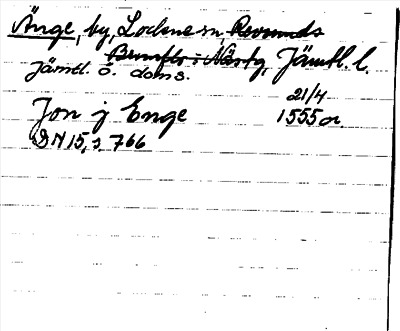 Änge, by, Lockne sn, Revsunds
Brunflo i Närtg, Jämtl. l.
Jämtl. ö. doms.
Jon j Enge 21/4 1555 or.
DN 15, s. 766